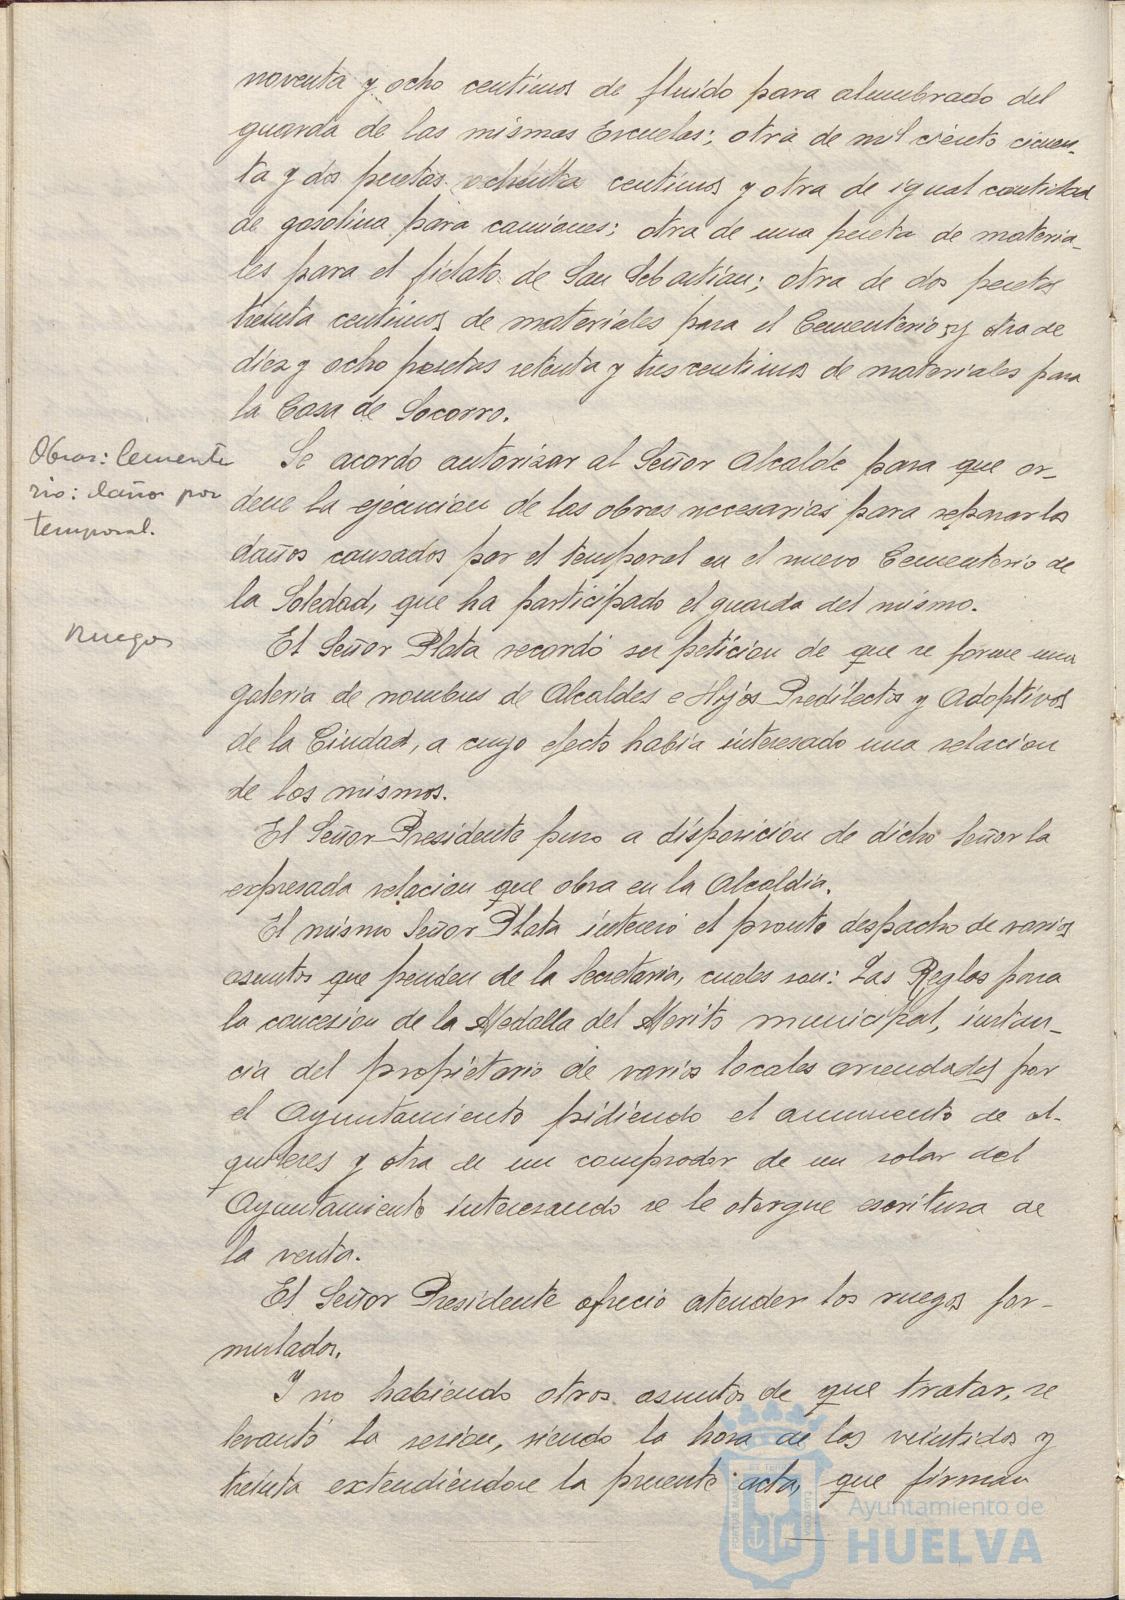 noventa y ocho centimos de fluido para alumbrado del
guarda de las mismas Escuelas; otra de mil ciento cicuen-
ta y dos pesetas ochenta centimos y otra de igual cantidad
de gasolina para camiones; otra de una peseta de materia-
les para el fielato de San Sebastian; otra de dos pesetas
treinta centimos de materiales para el Cementerio y otra de
diez y ocho pesetas setenta y tres centimos de materiales para
la Casa de Socorro.
Obras: Cemente
rio: daños por
temporal.
Se acordó autorizar al Señor Alcalde para que or-
dene la ejecucion de las obras necesarias para reparar los
daños causados por el temporal en el nuevo Cementerio de
la Soledad, que ha participado el guarda del mismo.
Ruegos
El Señor Plata recordó su peticion de que se forme una
galeria de nombres de Alcaldes e Hijos Predilectos y Adoptivos
de la Ciudad, a cuyo efecto habia interesado una relacion
de los mismos.
El Señor Presidente puso a disposicion de dicho Señor la
expresada relacion que obra en la Alcaldia.
El mismo Señor Plata interesó el pronto despacho de varios
asuntos que penden de la Secretaria, cuales son: Las Reglas para
la concesion de la Medalla del Merito municipal, instan-
cia del propietario de varios locales arrendados por
el Ayuntamiento pidiendo el aumento de al-
quileres y otra de un comprador de un solar del
Ayuntamiento interesando se le otorgue escritura de
la venta.
El Señor Presidente ofreció atender los ruegos for-
mulados.
Y no habiendo otros asuntos de que tratar, se
levantó la sesion, siendo la hora de las veintidos y
treinta extendiendose la presente acta, que firman
Ayuntamiento de
HUELVA